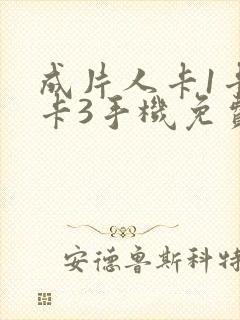 成片人卡1卡
卡3手機免費
安德魯斯科特